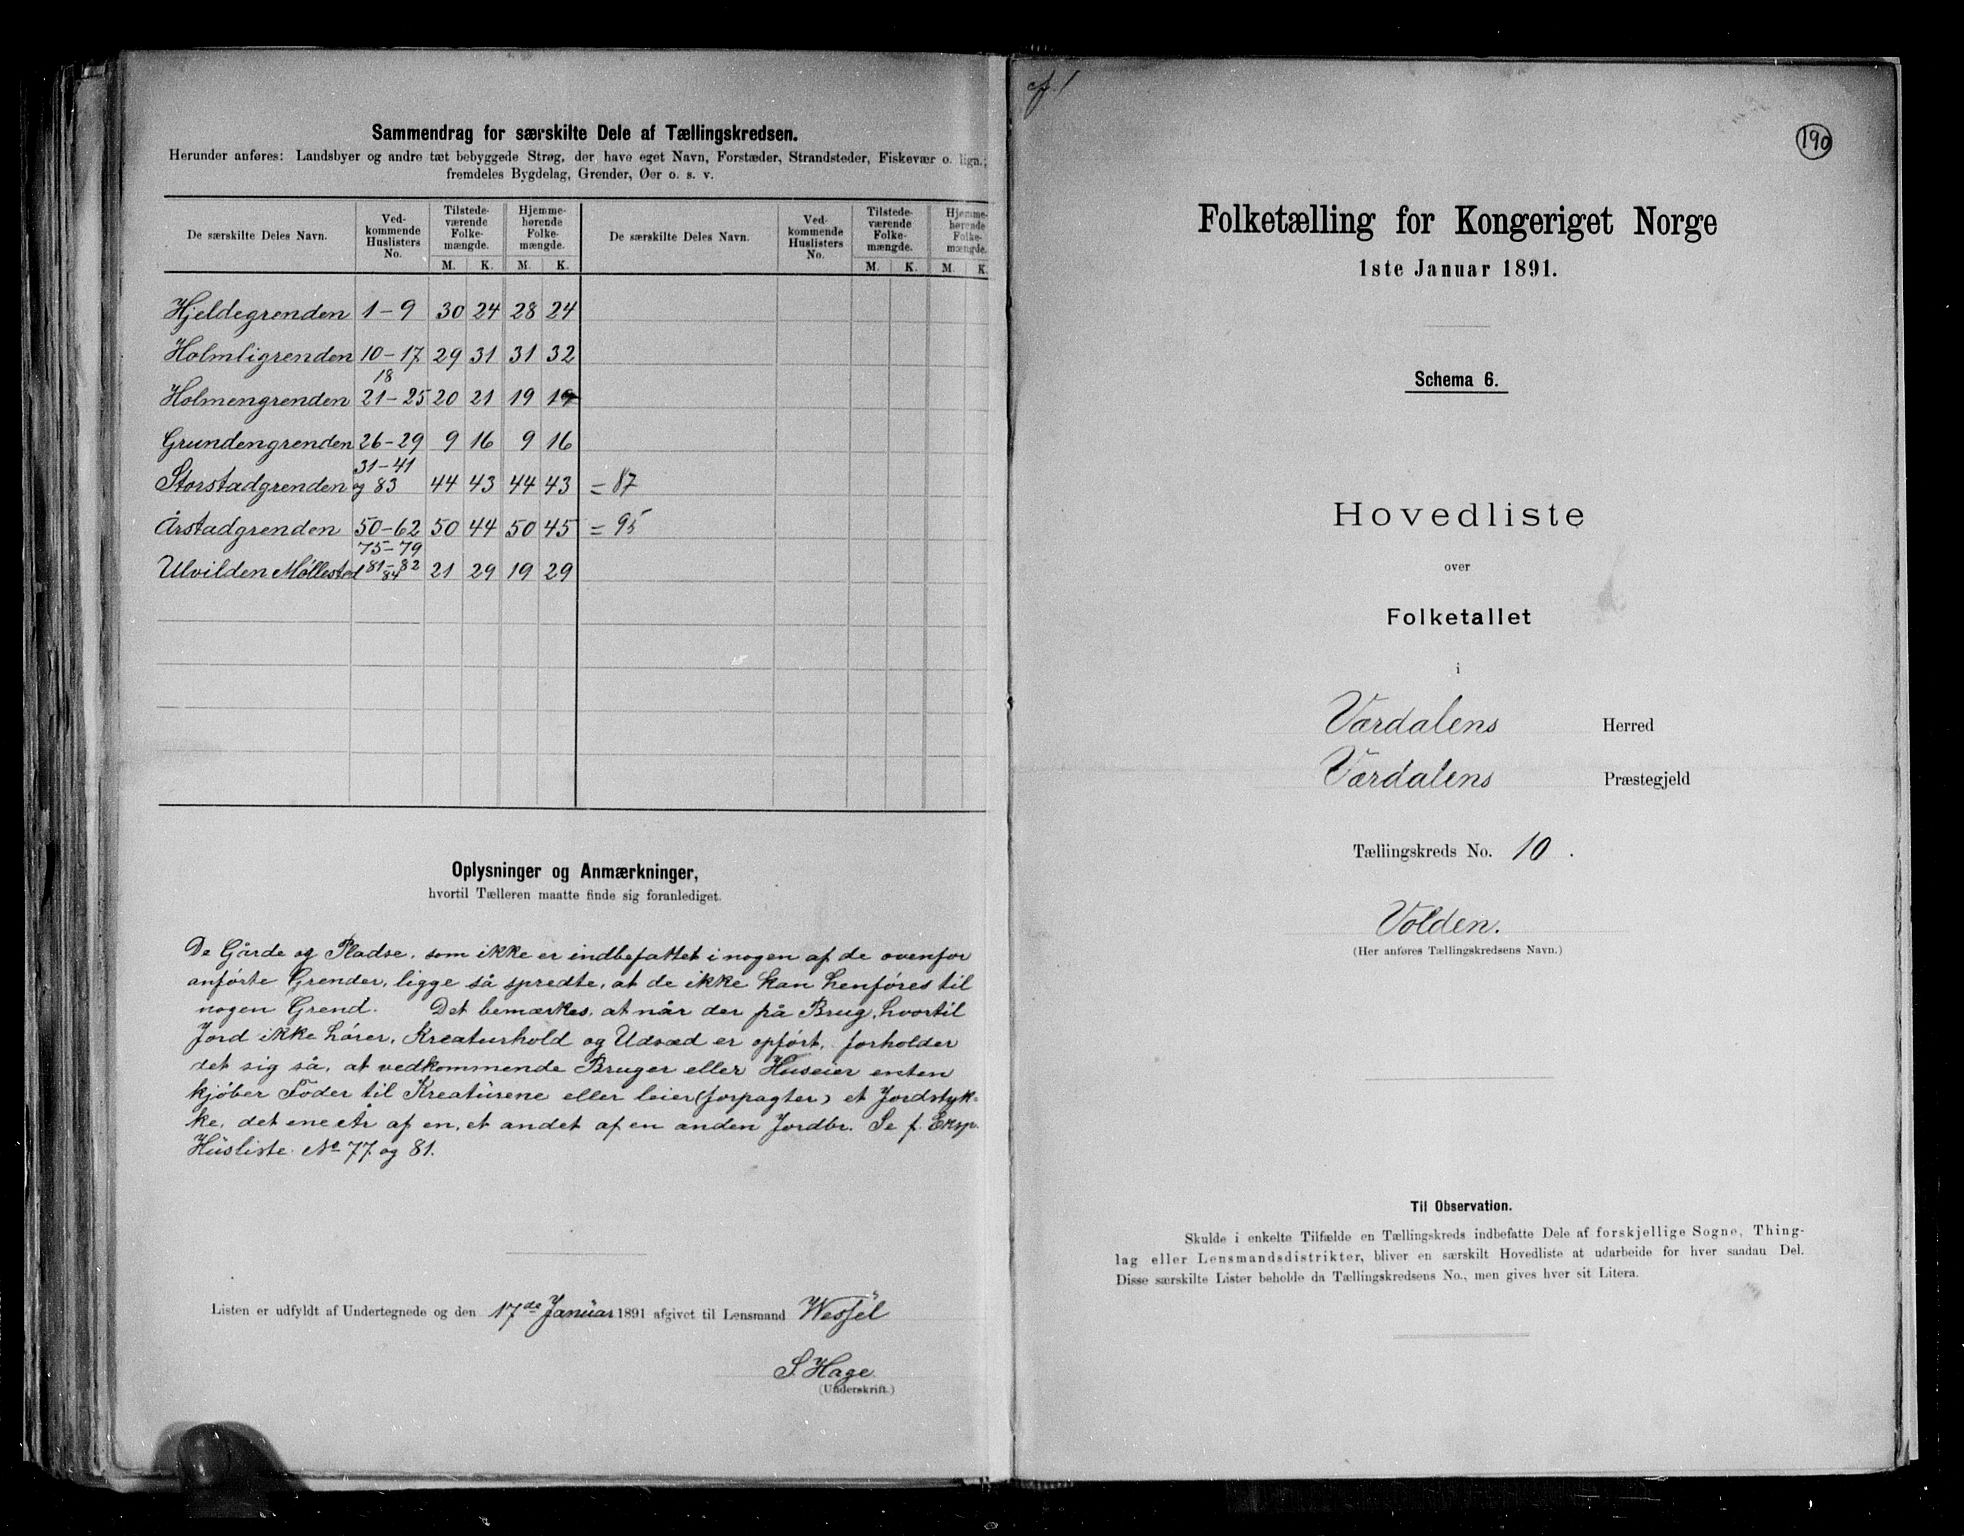 Sammendrag for særskilte Dele af Tællingskredsen.
Herunder anføres: Landsbyer og andre tæt bebyggede Strøg, der have eget Navn, Forstæder, Strandsteder, Fiskevær o. lign.;
fremdeles Bygdelag, Grender, Øer o. s. v.
De særskilte Deles Navn. Ved-kommende Huslisters No. Tilstede-værende Folke-mængde. Hjemme-hørende Folke-mængde. De særskilte Deles Navn. Ved-kommende Huslisters No. Tilstede-værende Folke-mængde. Hjemme-hørende Folke-mængde.
M. K. M. K. M. K. M. K.
Hjeldegrenden 1-9 30 24 28 24
Holmligrenden 10-17 29 31 31 32
18
Holmengrenden 21-25 20 21 19 19
Grundengrenden 26-29 9 16 9 16
31-41
Storstadgrenden og 83 44 43 44 43 = 87
Årstadgrenden 50-62 50 44 50 45 = 95
75-79
Ulvilden Møllested 81-82 21 29 19 29
84
Oplysninger og Anmærkninger,
hvortil Tælleren maatte finde sig foranlediget.
De Gårde og Pladse, som ikke er indbefattet i nogen af de ovenfor
anførte Grender, ligge så spredte, at de ikke kan henføres til
nogen Grend. Det bemærkes, at når der på Brug, hvortil
Jord ikke hører, Kreaturhold og Udsæd er opført, forholder
det sig så, at vedkommende Bruger eller Huseier enten
kjøber Foder til Kreaturene eller leier (forpagter) et Jordstyk-
ke, det ene År af en, et andet af en anden Jordbr. Se f. Eksp.
Husliste No 77 og 81.
Listen er udfyldt af Undertegnede og den 17de Januar 1891 afgivet til Lensmand Wessel
S. Hage
(Underskrift.)
cf. 1
190
Folketælling for Kongeriget Norge
1ste Januar 1891.
Schema 6.
Hovedliste
over
Folketallet
i
Værdalens Herred
Værdalens Præstegjeld
Tællingskreds No. 10.
Volden.
(Her anføres Tællingskredsens Navn.)
Til Observation.
Skulde i enkelte Tilfælde en Tællingskreds indbefatte Dele af forskjellige Sogne, Thing-
lag eller Lensmandsdistrikter, bliver en særskilt Hovedliste at udarbeide for hver saadan Del.
Disse særskilte Lister beholde da Tællingskredsens No., men gives hver sit Litera.